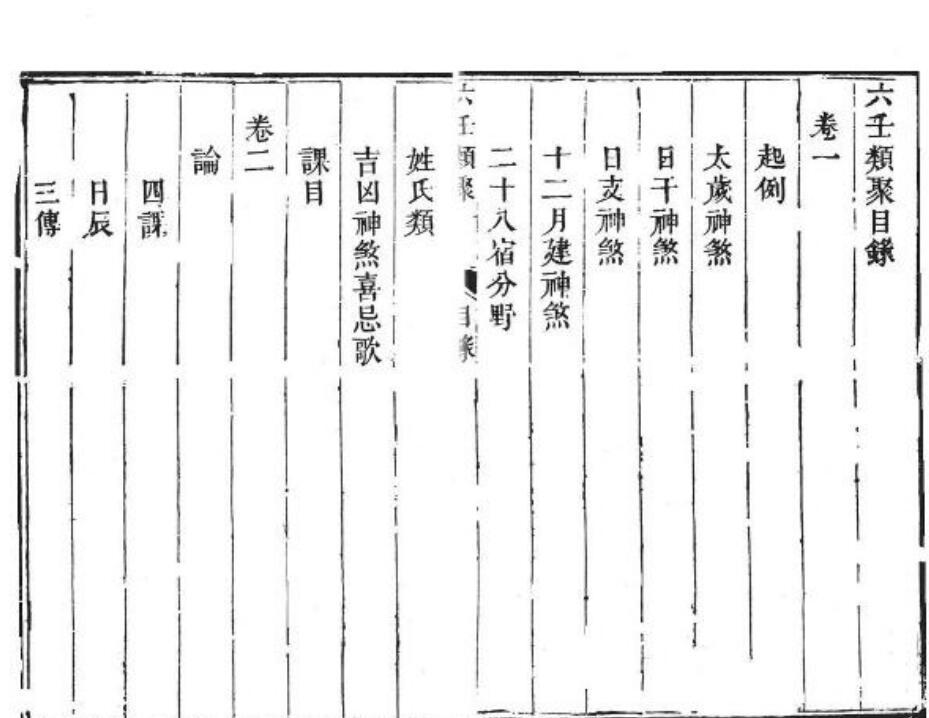 六壬類聚目錄
卷一
起例
太歲神煞
日干神煞
日支神煞
十二月建神煞
二十八宿分野
六壬類聚
目錄
姓氏類
吉凶神煞喜忌歌
課目
卷二
論
四課
日辰
三傳